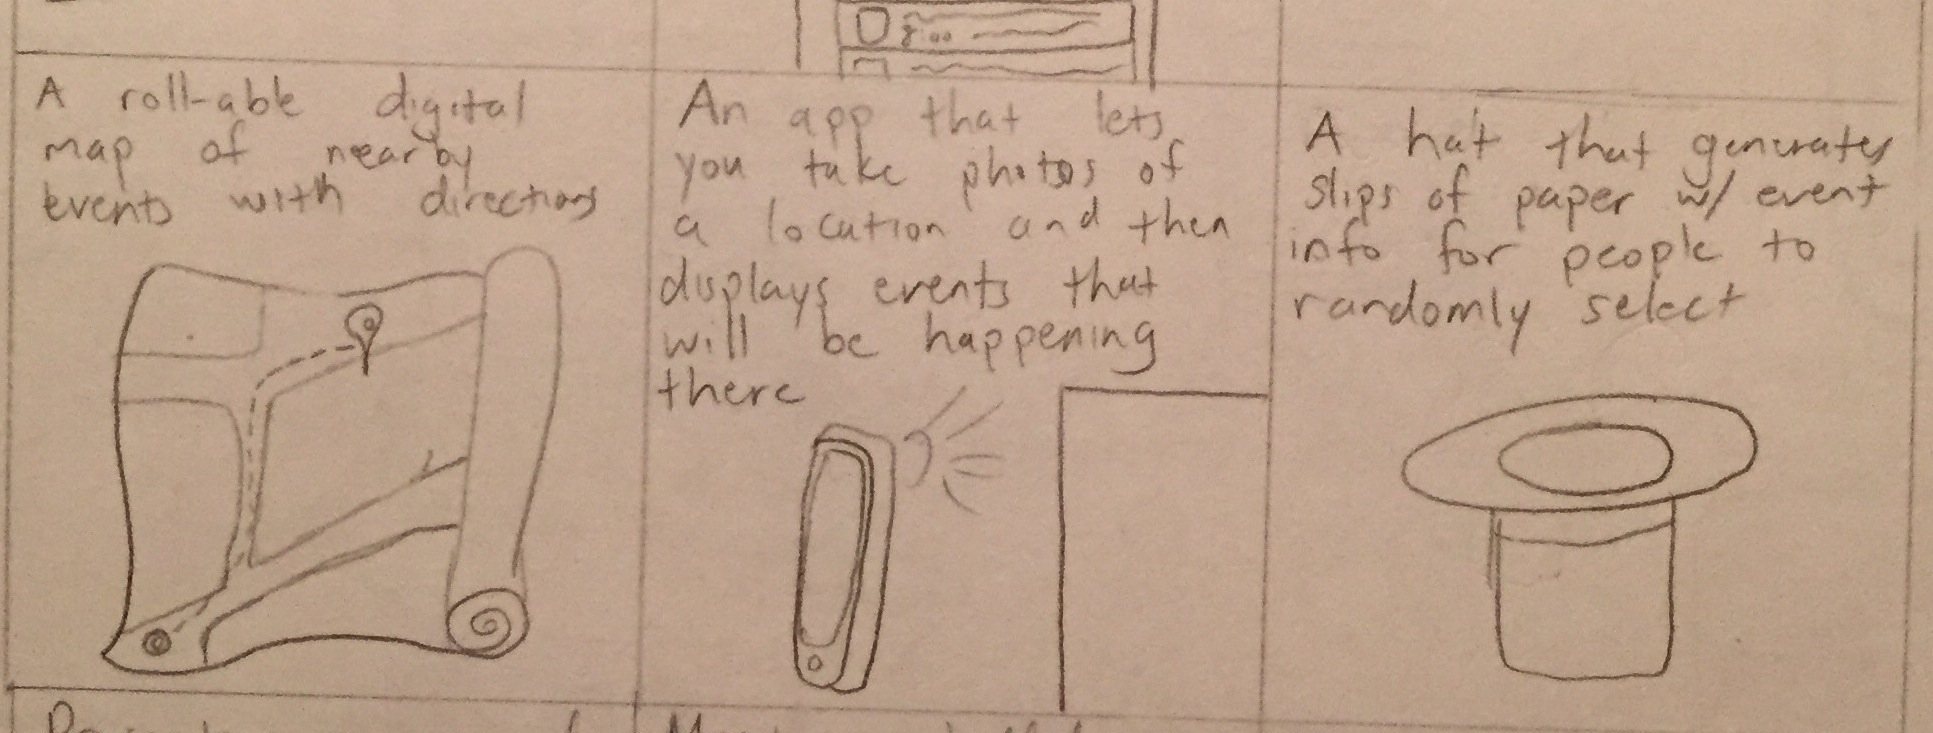 A roll-able digital
map of nearby
events with directions
An app that lets
you take photos of
a location and then
displays events that
will be happening
there
A hat that generates
slips of paper w/ event
info for people to
randomly select